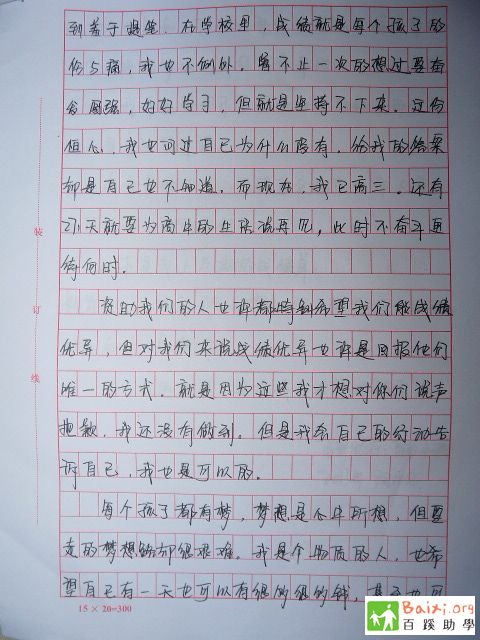 到着于提笔。在学校里，成绩就是每个孩子的
伤与痛，我也不例外。曾不止一次的想过要奋
发图强，好好学习，但就是坚持不下来。过
但心，我也问过自己为什么没有，给我的答案
却是自己也不知道。而现在，我已高三，还有
天就要为高中的生涯说再见，此时不奋斗更
待何时。
资助我们的人也许都特别希望我们能成绩
优异，但对我们来说成绩优异也许是回报他们
唯一的方式。就是因为这些我才想对你们说声
抱歉，我还没有做到。但是我会自己的行动告
诉自己，我也是可以的。
每个孩子都有梦，梦想是心中所想，但要
走的梦想路却很艰难。我是个物质的人，也希
望自己有一天也可以有很多很多的钱，甚至也可
装
订
线
15×20=300
Baixi.org
百蹊助學